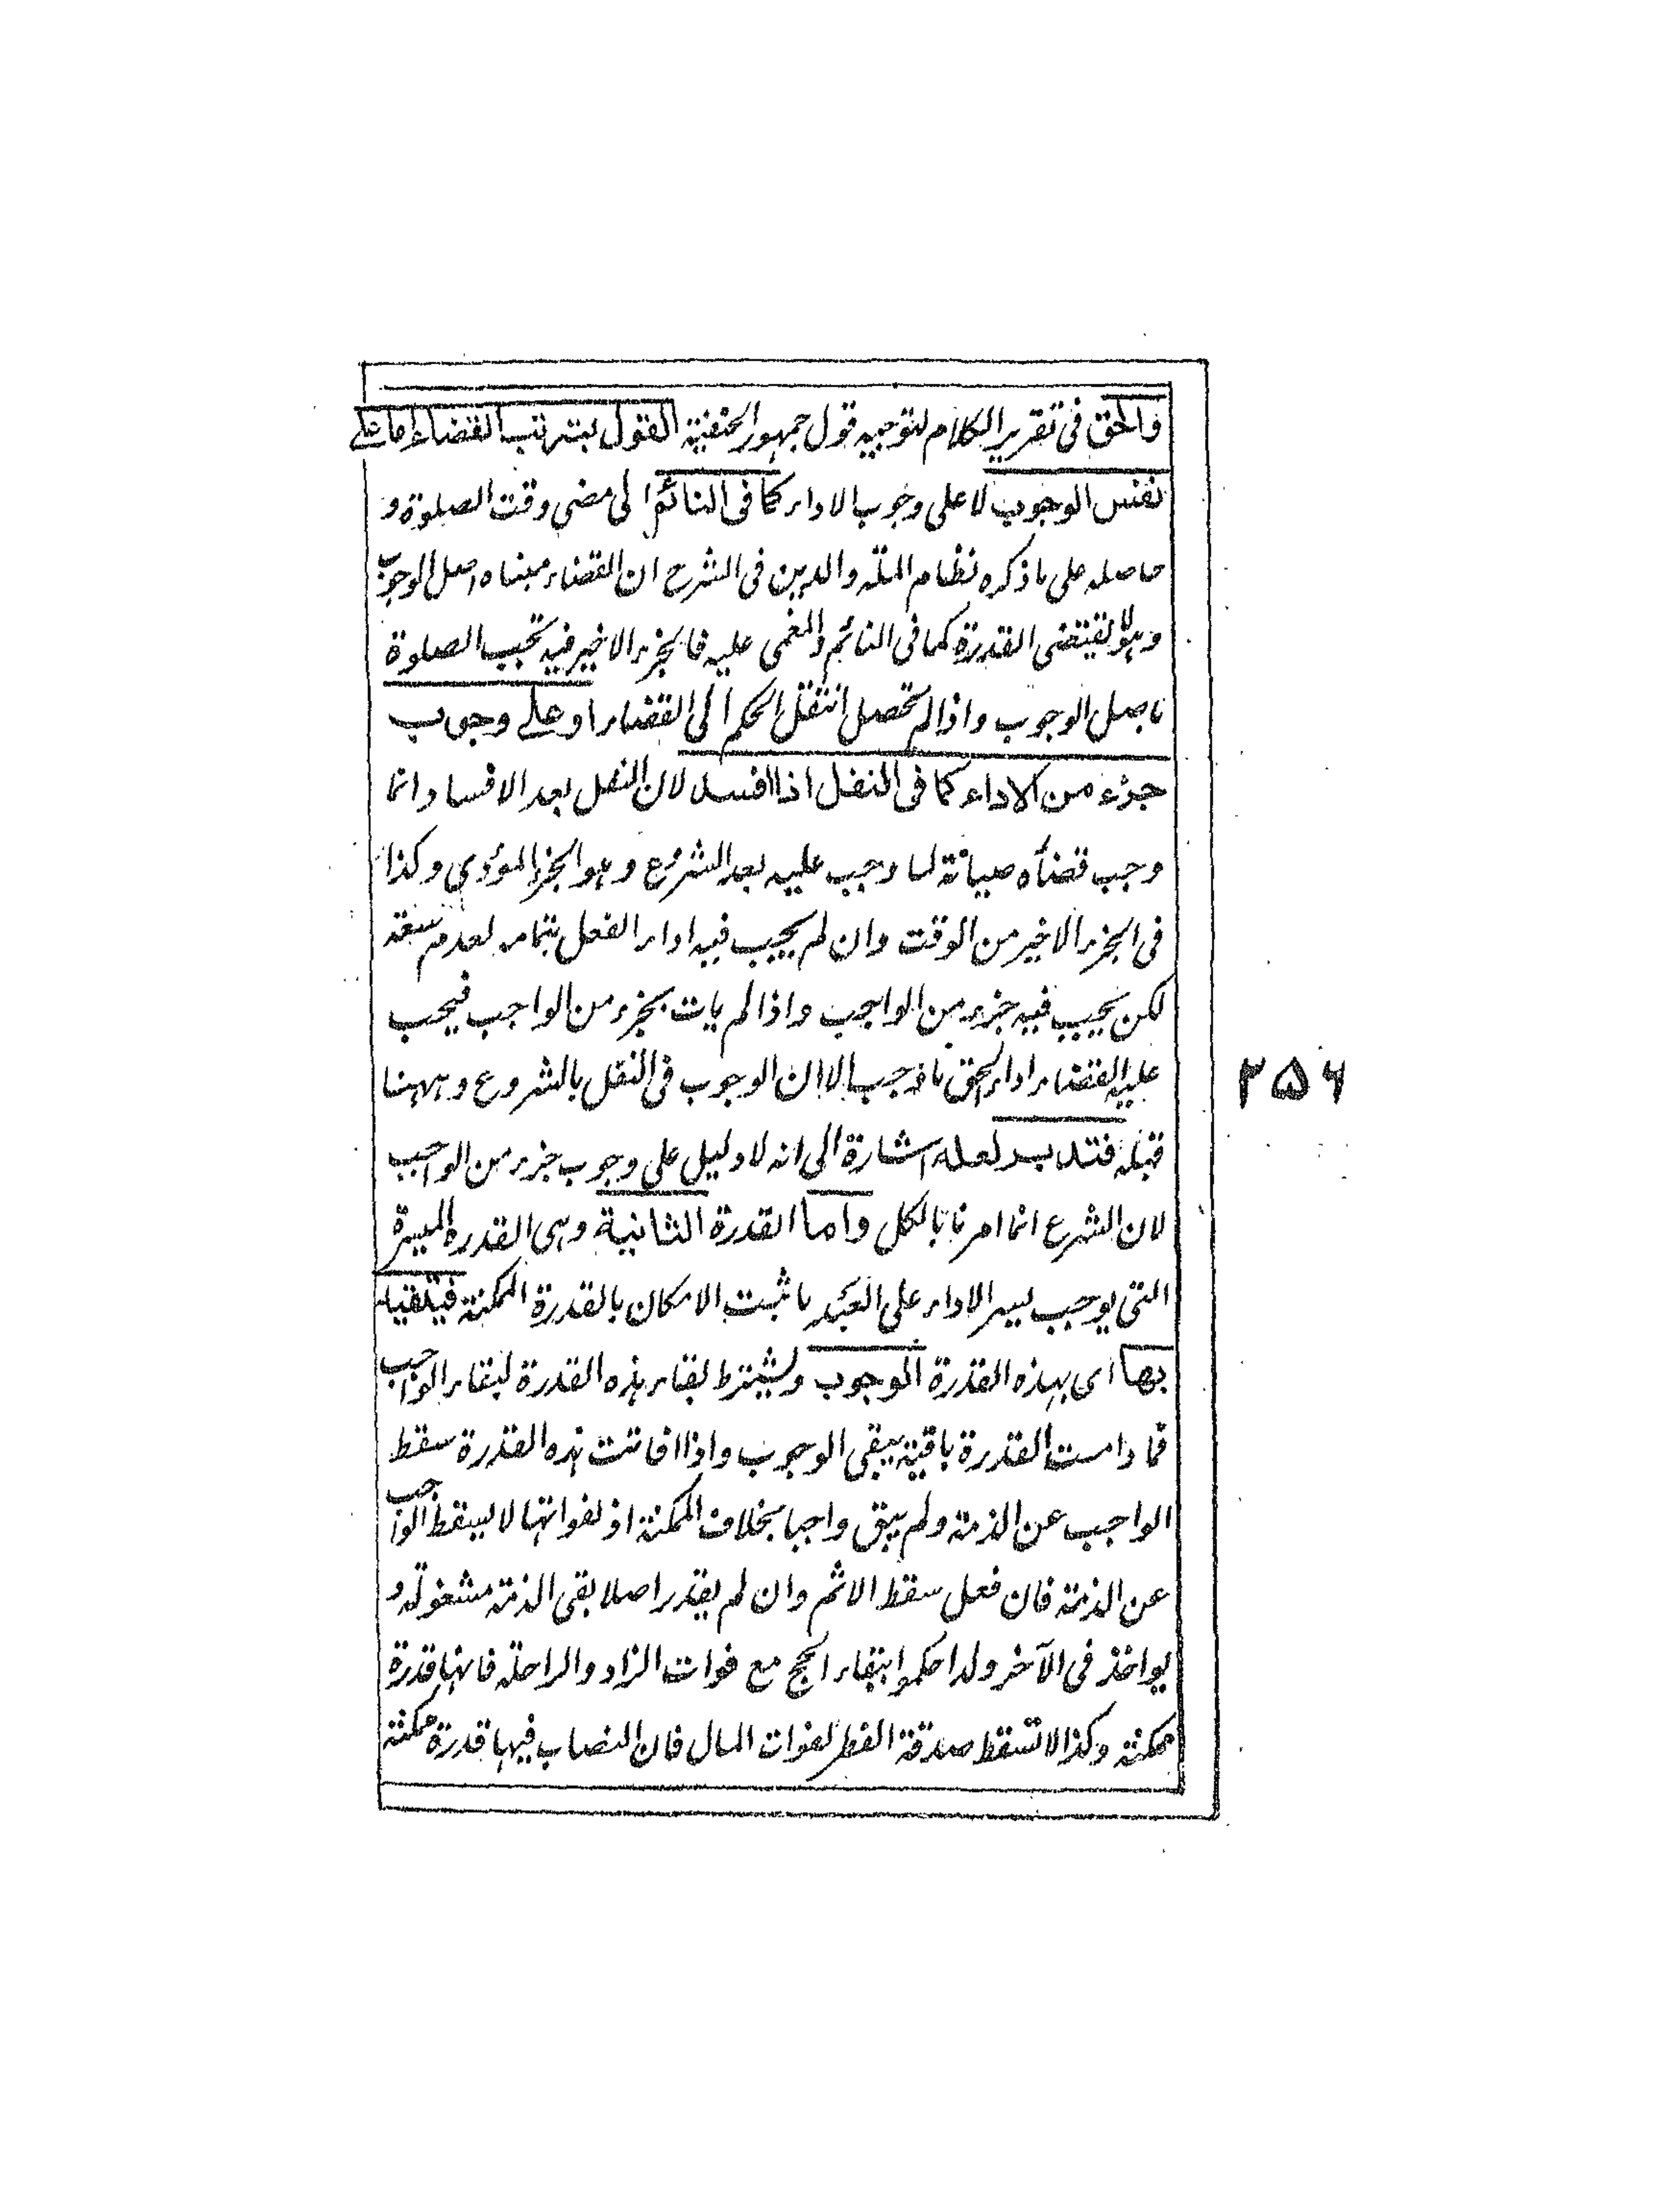 والحق فى تقرير الكلام لتوجيه قول جمهور الحنفية القول بترتب القضاء اما على
نفس الوجوب لا على وجوب الاداء كما فى النائم الى مضى وقت الصلوة و
حاصله على ما ذكره نظام الملة والدين فى الشرح ان القضاء مبناه اصل الوجوب
وهو لا يقتضى القدرة كما فى النائم والمغمى عليه فالجزء الاخير فيه تجب الصلوة
باصل الوجوب واذا لم تحصل انتقل الحكم الى القضاء او على وجوب
جزء من الاداء كما فى النفل اذا افسد لان النفل بعد الافساد انما
وجب قضاؤه صيانة لما وجب عليه بعد الشروع وهو الجزء المؤدى وكذا
فى الجزء الاخير من الوقت وان لم يجب فيه اداء الفعل بتمامه لعدم سعته
لكن يجب فيه جزء من الواجب واذا لم يات بجزء من الواجب فيجب
عليه القضاء اداء لحق ما وجب الا ان الوجوب فى النفل بالشروع وههنا
قبله فتدبر لعله اشارة الى انه لا دليل على وجوب جزء من الواجب
لان الشرع انما امرنا بالكل واما القدرة الثانية وهى القدرة الميسرة
التى يوجب يسر الاداء على العبد ما ثبت الامكان بالقدرة الممكنة فيتقيد
بها اى بهذه القدرة الوجوب ويشترط بقاء هذه القدرة لبقاء الواجب
فما دامت القدرة باقية يبقى الوجوب واذا فاتت هذه القدرة سقط
الواجب عن الذمة ولم يبق واجبا بخلاف الممكنة اذ لفواتها لا يسقط الواجب
عن الذمة فان فعل سقط الاثم وان لم يقدر اصلا بقى الذمة مشغولة و
يواخذ فى الآخر ولذا حكموا ببقاء الحج مع فوات الزاد والراحلة فانها قدرة
ممكنة وكذا لا تسقط صدقة الفطر لفوات المال فان النصاب فيها قدرة ممكنة
۲۵۶